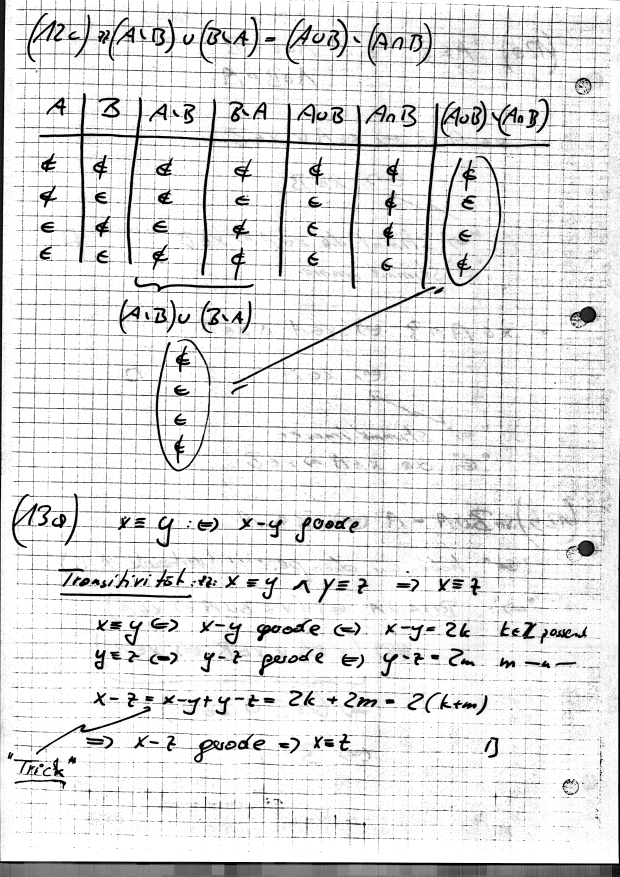 (12c) zz (A∖B) ∪ (B∖A) = (A∪B)∖(A∩B)
A | B | A∖B | B∖A | A∪B | A∩B | (A∪B)∖(A∩B)
∉ | ∉ | ∉ | ∉ | ∉ | ∉ | ∉
∉ | ∈ | ∉ | ∈ | ∈ | ∉ | ∈
∈ | ∉ | ∈ | ∉ | ∈ | ∉ | ∈
∈ | ∈ | ∉ | ∉ | ∈ | ∈ | ∉
(A∖B) ∪ (B∖A)
∉
∈
∈
∉
(13a) x ≡ y :⇔ x-y gerade
Transitivität: zz: x ≡ y ∧ y ≡ z ⇒ x ≡ z
x ≡ y ⇔ x-y gerade ⇔ x-y = 2k k∈ℤ passend
y ≡ z ⇔ y-z gerade ⇔ y-z = 2m m — " —
x-z = x-y+y-z = 2k + 2m = 2(k+m)
⇒ x-z gerade ⇒ x ≡ z □
"Trick"